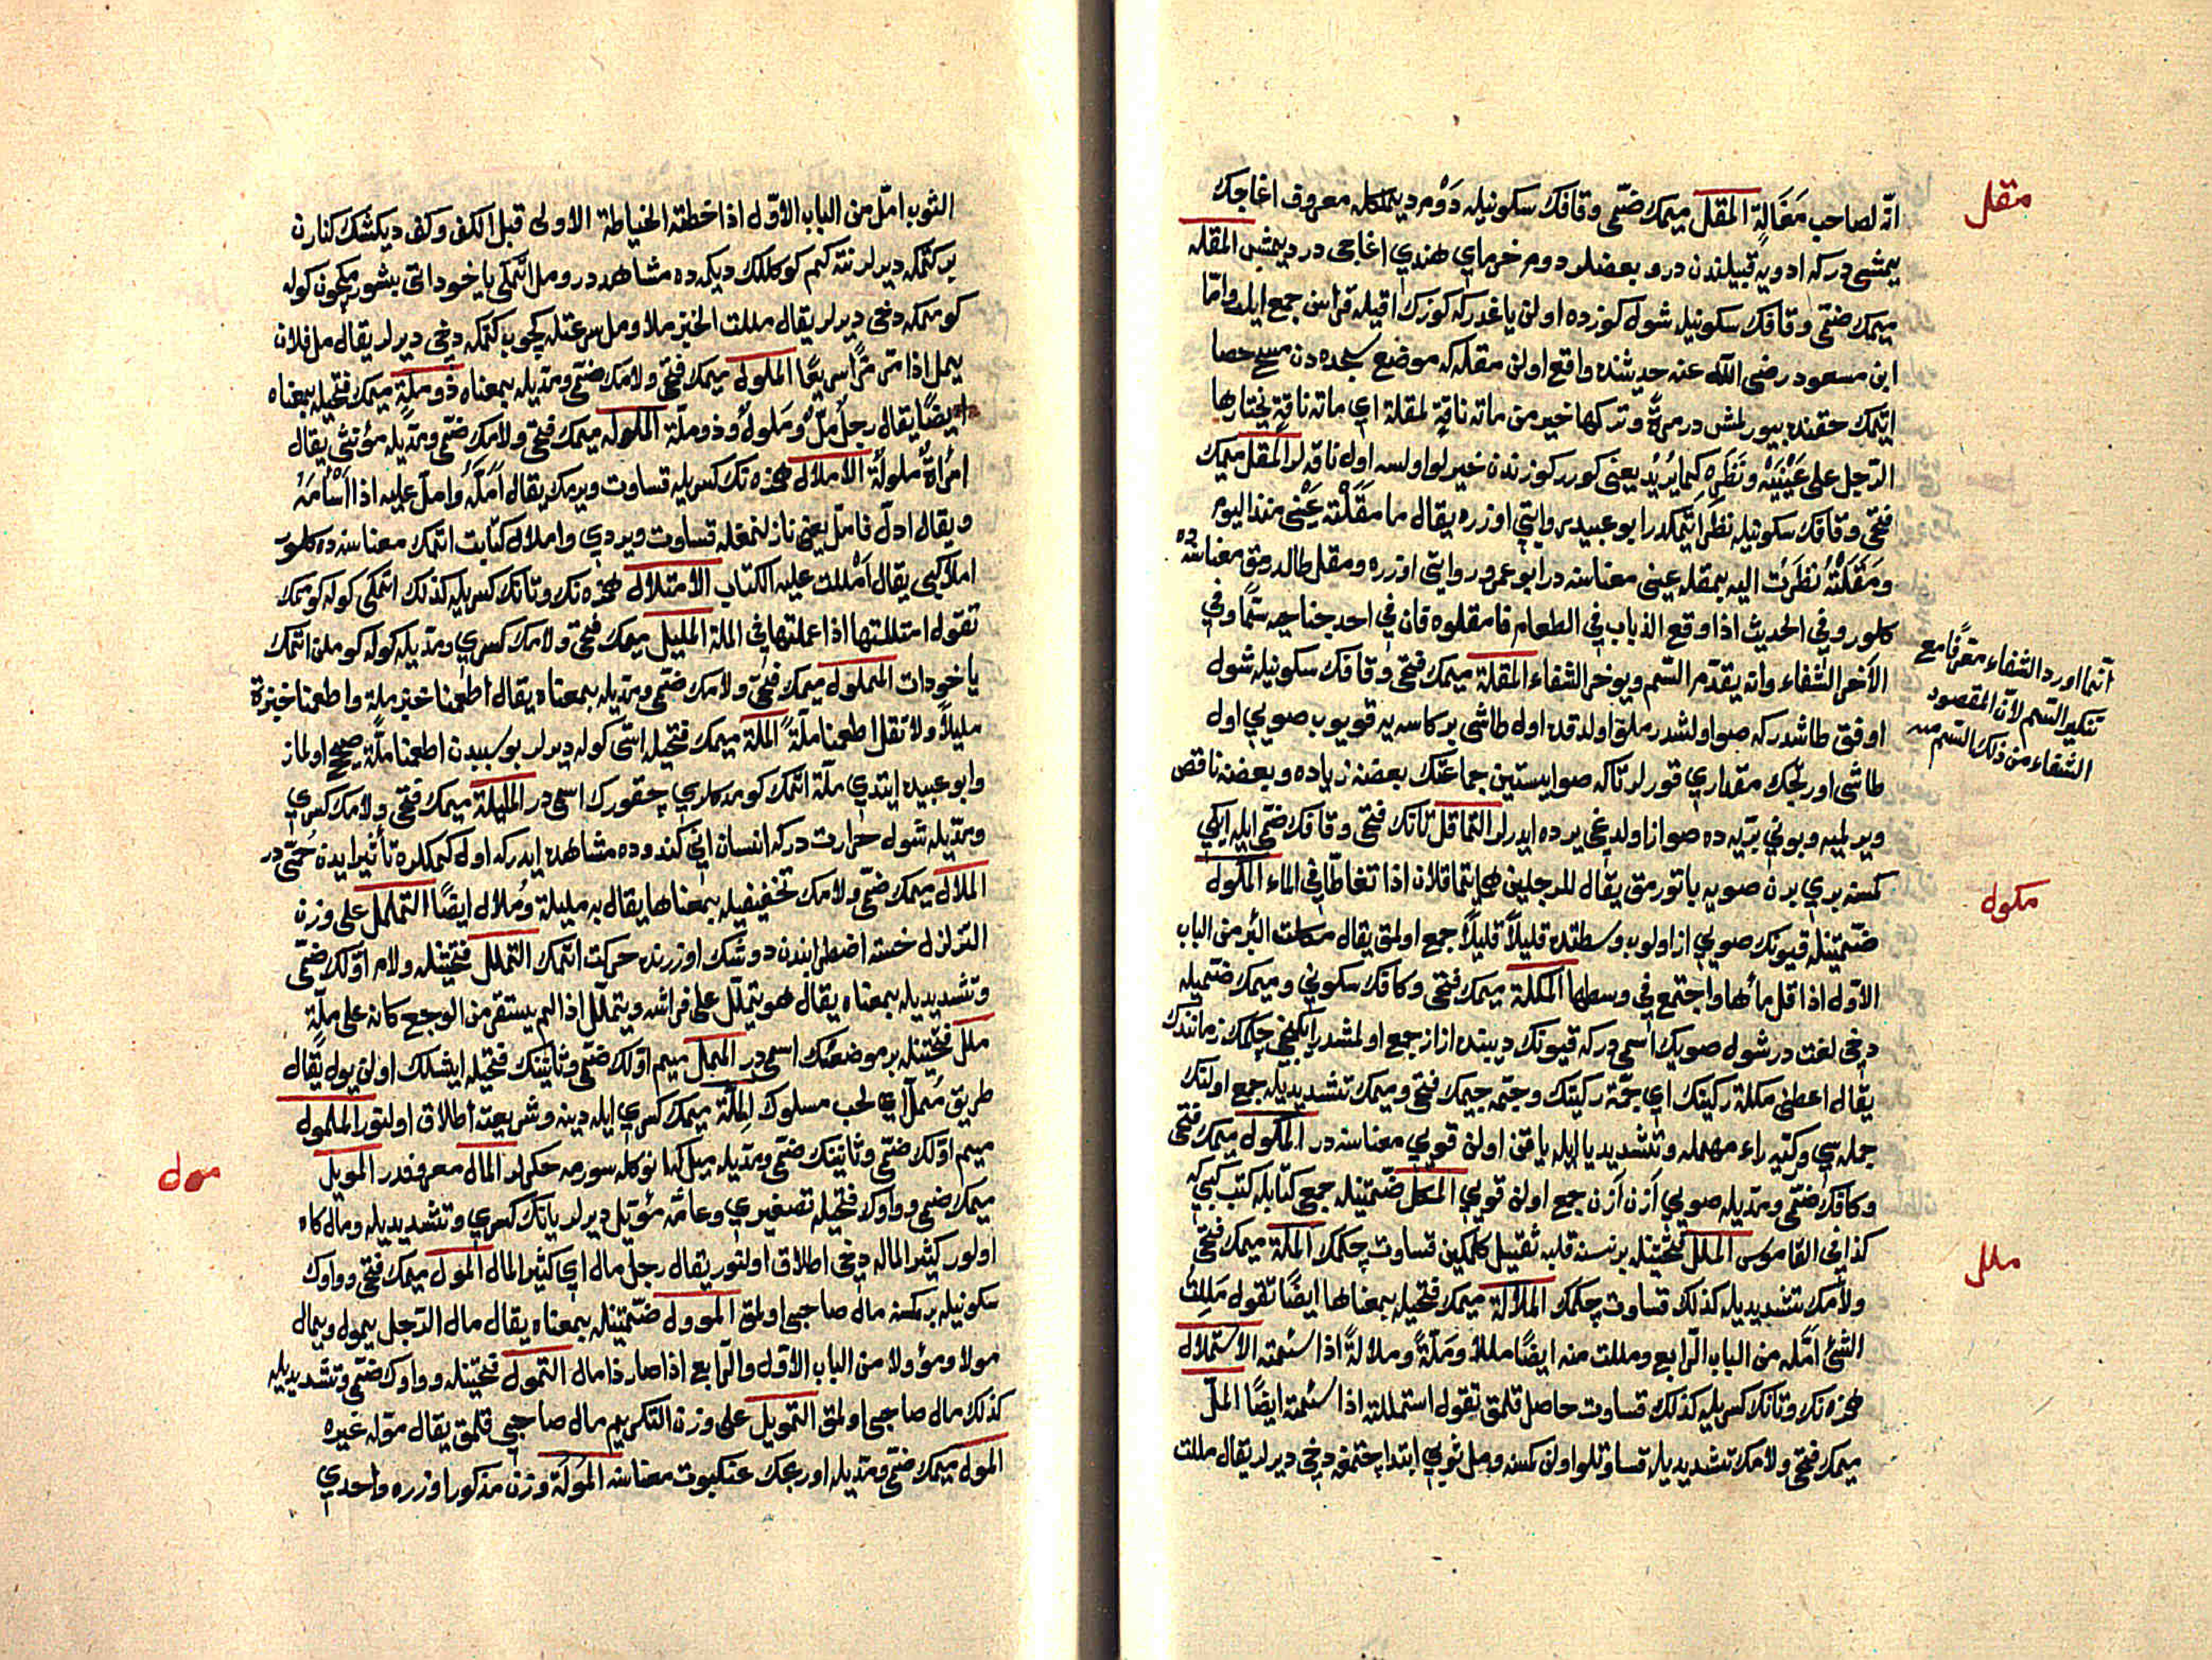 مقل
انه لصاحب مغالة المقل ميمك ضمى وقافك سكونيله دوم ديمكله معروف اغاجك
يمشى در كه ادويه قبيلندن در و بعضلر دوم خرماى هندي اغاجى در ديمشلر المقله
ميمك ضمى وقافك سكونيله شول كوزده اولن ياغدر كه كوزك اقيله قراسن جمع ايلر واما
ابن مسعود رضى الله عنه حديثنده واقع اولن مقله كه موضع سجده دن مسح حصا
اتمك حقنده بيورلمش در مرة وتركها خير من مائة ناقة لمقلة اي مائة ناقة يختارها
الرجل على عينيه ونظره كما يريد يعنى كورر كوزندن خيرلو اولسه اول ناقه لر المقل ميمك
فتحى وقافك سكونيله نظر اتمكدر ابو عبيد روايتى اوزره يقال ما مقلته عينى منذ اليوم
ومقلته نظرت اليه بمقلة عينى معناسنه در ابو عمرو روايتى اوزره ومقل طالدرمق معناسنده
كلور وفي الحديث اذا وقع الذباب في الطعام فامقلوه فان في احد جناحيه سما وفي
الآخر الشفاء وانه يقدم السم ويؤخر الشفاء المقلة ميمك فتحى وقافك سكونيله شول
اوفق طاشدر كه صو اولشدرملق اولدقده اول طاشى بر كاسه يه قويوب صويى اول
طاشى اورتجك مقداري قورلر تاكه صو ايستين جماعتك بعضنه زياده وبعضنه ناقص
ويرلميه وبونى بريه ده صو از اولدغى يرده ايدرلر التماقل تانك فتحى وقافك ضمى ايله ايكى
كمسنه بري برن صويه باتورمق يقال للرجلين هما يتماقلان اذا تغاطا في الماء المكول
ضمتينله قيونك صويى از اولوب وسطنده قليلاً قليلاً جمع اولمق يقال مكلت البئر من الباب
الاول اذا قل ماؤها واجتمع في وسطها المكلة ميمك فتحى وكافك سكونى وميمك ضميله
دخى لغت در شول صويك اسمى در كه قيونك ديبنده از از جمع اولمشدر ايلكنجى چكلمك زماننده
يقال اعطنى مكلة ركيتك اي جمة ركيتك وجمه جيمك فتحى وميمك تشديديله جمع اولنك
جمله سى وركيه راء مهمله وتشديد يا ايله ياقن اولن قويى معناسنه در المكول ميمك فتحى
وكافك ضمى ومديله صويى ازن ازن جمع اولن قويى المكل ضمتينله جمع كتابله كتب كبى كه
كذا في القاموس الملل فتحتينله بر نسنه قلبه ثقيل كلمكين قساوت چكمك الملة ميمك فتحى
ولامك تشديديله كذلك قساوت چكمك الملالة ميمك فتحيله بمعناها ايضًا تقول مللت
الشئ امله من الباب الرابع ومللت منه ايضًا مللاً وملةً وملالةً اذا سئمته الاستملال
همزه نك وتانك كسريله كذلك قساوت حاصل قلمق تقول استمللته اذا سئمته ايضًا المل
ميمك فتحى ولامك تشديديله قساوتلو اولن كمسنه ومل ثوبى ابتدا چتمغه دخى ديرلر يقال مللت
انما اورد الشفاء معرفا مع
تنكير السم لان المقصود
الشفاء من ذلك السم منه
مكول
ملل
الثوب امل من الباب الاول اذا خطته الخياطة الاولى قبل الكف وكف ديكشك كنارن
بركتمكه ديرلر نته كيم كوكللك ديكمه ده مشاهد در ومل اتمكى ياخود اتى پشورمكچون كوله
كوممكه دخى ديرلر يقال مللت الخبز ملا ومل سرعتله كچوب كتمكه دخى ديرلر يقال مل فلان
يمل اذا مر مرا سريعًا الملول ميمك فتحى ولامك ضمى ومديله بمعناه ذو ملة ميمك فتحيله بمعناه
ايضًا يقال رجل مل وملول وذو ملة الملولة ميمك فتحى ولامك ضمى ومديله مؤنثى يقال
امرأة ملولة الاملال همزه نك كسريله قساوت ويرمك يقال امله وامل عليه اذا اسأمه
ويقال ادل فامل يعنى نازلنمغله قساوت ويردي واملال كتابت اتمك معناسنه ده كلور
املا كبى يقال امللت عليه الكتاب الامتلال همزه نك وتانك كسريله كذلك اتمكى كوله كوممك
تقول امتللتها اذا عملتها في الملة المليل ميمك فتحى ولامك كسري ومديله كوله كوملن اتمك
ياخود ات المملول ميمك فتحى ولامك ضمى ومديله بمعناه يقال اطعمنا خبز ملة واطعمنا خبزة
مليلاً ولا تقل اطعمنا ملةً الملة ميمك فتحيله اسى كوله ديرلر بو سببدن اطعمنا ملة صحيح اولماز
وابو عبيد ايتدي ملة اتمك كومدكلري چقورك اسمى در المليلة ميمك فتحى ولامك كسري
ومديله شول حرارت در كه انسان انى كندوده مشاهده ايدر كه اول كمكلره تأثير ايدن حمى در
الملال ميمك ضمى ولامك تخفيفيله بمعناها يقال به مليلة وملال ايضًا التململ على وزن
التزلزل خسته اضطرابندن دوشك اوزرنده حركت اتمك التملل فتحتينله ولام اولك ضمى
وتشديديله بمعناه يقال هو يتململ على فراشه ويتملل اذا لم يستقر من الوجع كانه على ملة
ملل فتحتينله بر موضعك اسمى در الممل ميم اولك ضمى وثانينك فتحيله ايشلك اولن يول يقال
طريق ممل اي لحب مسلوك الملة ميمك كسري ايله دينه وشريعته اطلاق اولنور الملمول
ميم اولك ضمى وثانينك ضمى ومديله ميل كه انوكله سورمه چكرلر المال معروفدر المويل
ميمك ضمى وواوك فتحيله تصغيري وعامه مويل ديرلر يانك كسري وتشديديله ومال كاه
اولور كثير الماله دخى اطلاق اولنور يقال رجل مال اي كثير المال المول ميمك فتحى وواوك
سكونيله بر كمسنه مال صاحبى اولمق الموول ضمتينله بمعناه يقال مال الرجل يمول ويمال
مولا ومؤولا من الباب الاول والرابع اذا صار ذا مال التمول فتحتينله وواوك ضمى وتشديديله
كذلك مال صاحبى اولمق التمويل على وزن التكريم مال صاحبى قلمق يقال موله غيره
المول ميمك ضمى ومديله اورمجك عنكبوت معناسنه المولة وزن مذكور اوزره واحدي
مول